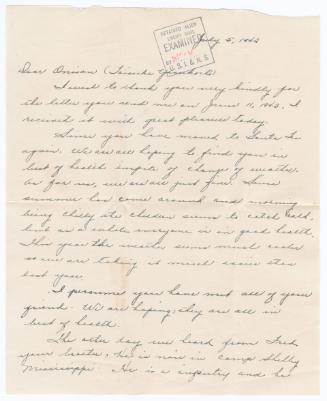 DETAINED ALIEN
ENEMY MAIL
EXAMINED
BY
U.S.I. & N.S.
July 5, 1943
Dear Oniisan
I want to thank you very kindly for
the letter you send me on June 11, 1943. I
received it with great pleasure today.
Since you have moved to Santa Fe
again. We are all hoping to find you in
best of health inspite of change of weather.
As for us, we are all just fine. Since
summer has come around and morning
being chilly the children seems to catch cold.
but as a whole everyone is in good health.
This year the weather seems much cooler
so we are taking it much easier than
last year.
I presume you have met all of your
friend. We are hoping they are all in
best of health.
The other day we heard from Fred
your brother, he is now in Camp Shelby
Mississippi. He is a infantry and he